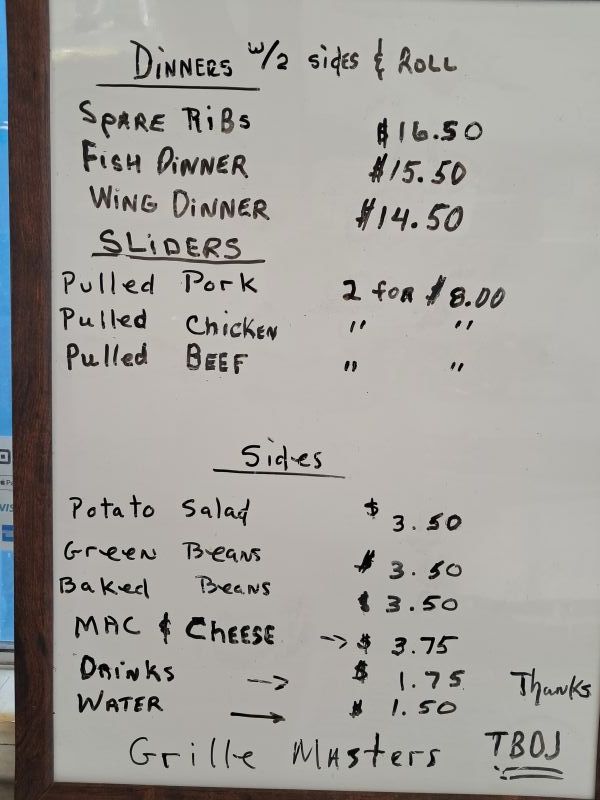 DINNERS w/2 sides & ROLL
SPARE RiBs $16.50
FISH DINNER $15.50
WING DINNER $14.50
SLiDERS
Pulled Pork 2 foR $8.00
Pulled ChickEN " "
Pulled BEEF " "
Sides
Potato Salad $ 3.50
GreeN BeaNS $ 3.50
Baked BeaNS $ 3.50
MAC & ChEESE -> $ 3.75
DRiNKS --> $ 1.75 Thanks
WATER → $ 1.50
Grille Masters TBOJ